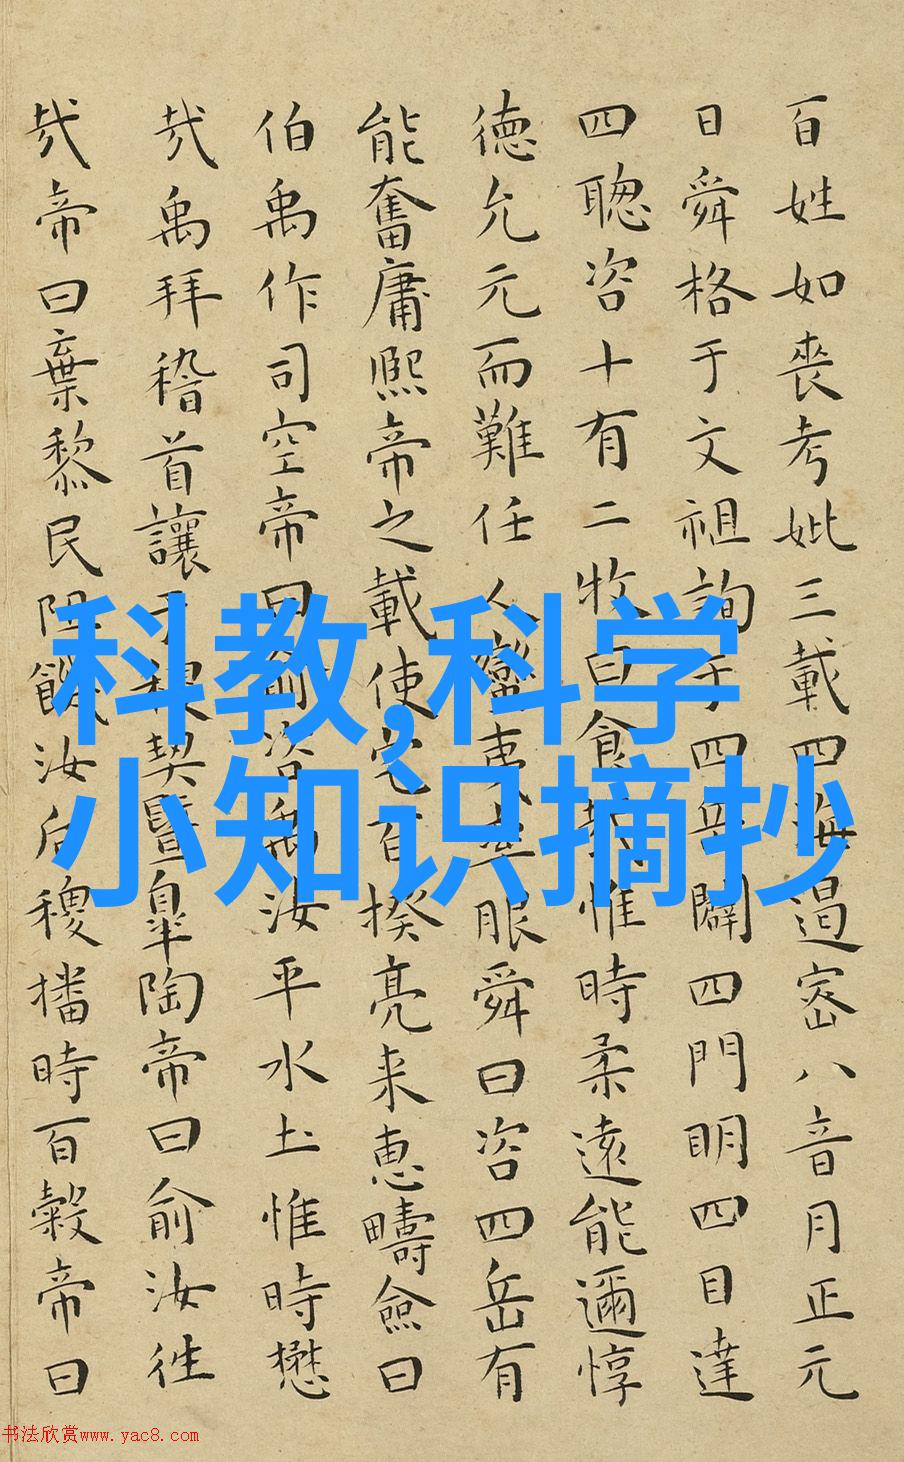 百姓如喪考妣三載四海遏密八音月正元
日舜格于文祖詢于四岳闢四門明四目達
四聰咨十有二牧曰食哉惟時柔遠能邇惇
德允元而難任人蠻夷率服舜曰咨四岳有
能奮庸熙帝之載使宅百揆亮来惠疇僉曰
伯禹作司空帝曰俞咨禹汝平水土惟時懋
哉禹拜稽首讓于稷契暨皐陶帝曰俞汝往
哉帝曰棄黎民阻饑汝后稷播時百穀帝曰
科教,科学
小知识摘抄
书法欣赏www.yac8.com